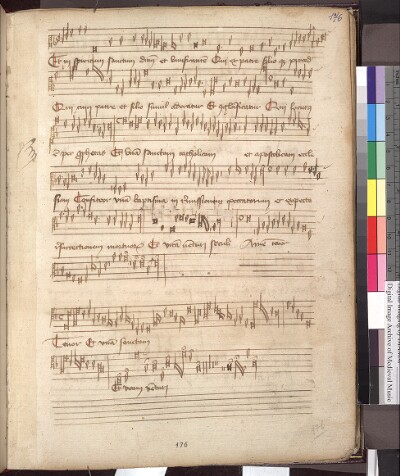 176
Et in spiritum sanctum dnm et vivificantem Qui ex patre filio q; proced
Qui cum patre et filio simul adoratur Et conglorificatur Qui locutus
e per prophetas Et unam sanctam catholicam et apostolicam eccle
siam Confiteor unum baptisma in remissionem peccatorum et expecto
resurrectionem mortuorum Et vitam venturi seculi Amen
Tenor Et unam sanctam
Et vitam venturi
176
Digital Image Archive of Medieval Music